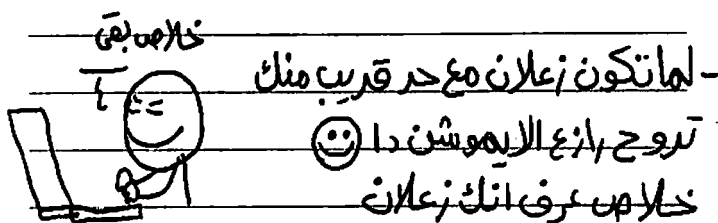 خلاص بقى
- لما تكون زعلان مع حد قريب منك
تروح رازع الايموشن دا 🙂
خلاص عرف انك زعلان